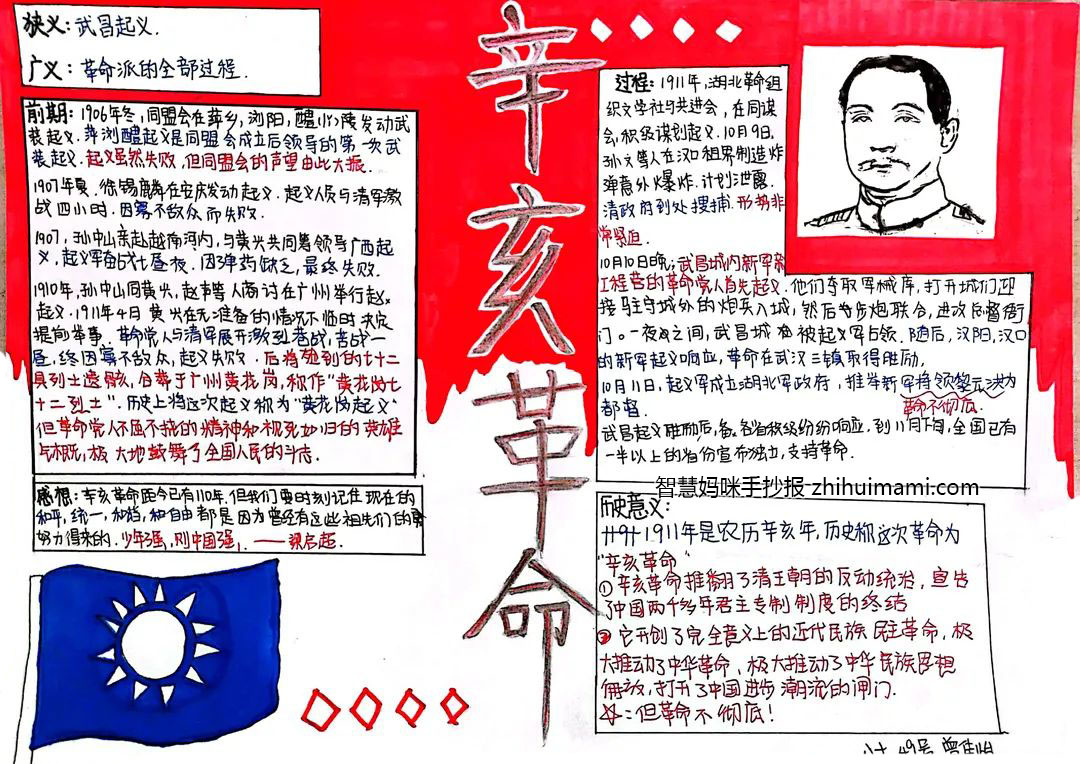 狭义：武昌起义.
广义：革命派的全部过程.
前期：1906年冬，同盟会在萍乡，浏阳，醴陵发动武
装起义.萍浏醴起义是同盟会成立后领导的第一次武
装起义.起义虽然失败，但同盟会的声望由此大振.
1907年夏.徐锡麟在安庆发动起义.起义人员与清军激
战四小时.因寡不敌众而失败.
1907，孙中山亲赴越南河内，与黄兴共同筹领导广西起
义，起义军奋战七昼夜.因弹药缺乏，最终失败.
1910年，孙中山同黄兴，赵声等人商讨在广州举行起义.
起义.1911年4月黄兴在无准备的情况不临时决定
提前举事.革命党人与清军展开激烈巷战，苦战一
昼，终因寡不敌众，起义失败.后将找到的七十二
具烈士遗骸，合葬于广州黄花岗，称作“黄花岗七
十二烈士”.历史上将这次起义称为“黄花岗起义”
但革命党人不屈不挠的精神和视死如归的英雄
气概，极大地鼓舞了全国人民的斗志.
感想：辛亥革命距今已有110年.但我们要时刻记住现在的
和平，统一，和谐，和自由都是因为曾经有这些祖先们的
努力得来的.少年强，则中国强，——梁启超.
辛亥革命
过程：1911年，湖北革命组
织文学社与共进会，在同谋
会，积极谋划起义.10月9日，
孙文等人在汉口租界制造炸
弹意外爆炸.计划泄露.
清政府到处搜捕.形势非
常紧迫.
10月10日晚，武昌城内新军
工程营的革命党人首先起义.他们夺取军械库，打开城门，迎
接驻守城外的炮兵入城，然后与步炮联合，进攻后督衙
门.一夜之间，武昌城被起义军占领.随后，汉阳，汉口
的新军起义响应，革命在武汉三镇取得胜励.
10月11日，起义军成立湖北军政府，推举新军将领黎元洪为
都督.
革命不彻底.
武昌起义胜励后，各省积极纷纷响应.到11月下旬，全国已有
一半以上的省份宣布独立，支持革命.
智慧妈咪手抄报-zhihuimami.com
历史意义：
1911年是农历辛亥年，历史称这次革命为
“辛亥革命”
①辛亥革命推翻了清王朝的反动统治，宣告
了中国两千多年君主专制制度的终结
②它开创了完全意义上的近代民族民主革命，极
大推动了中华革命，极大推动了中华民族思想
解放，打开了中国进步潮流的闸门.
：但革命不彻底！
49号